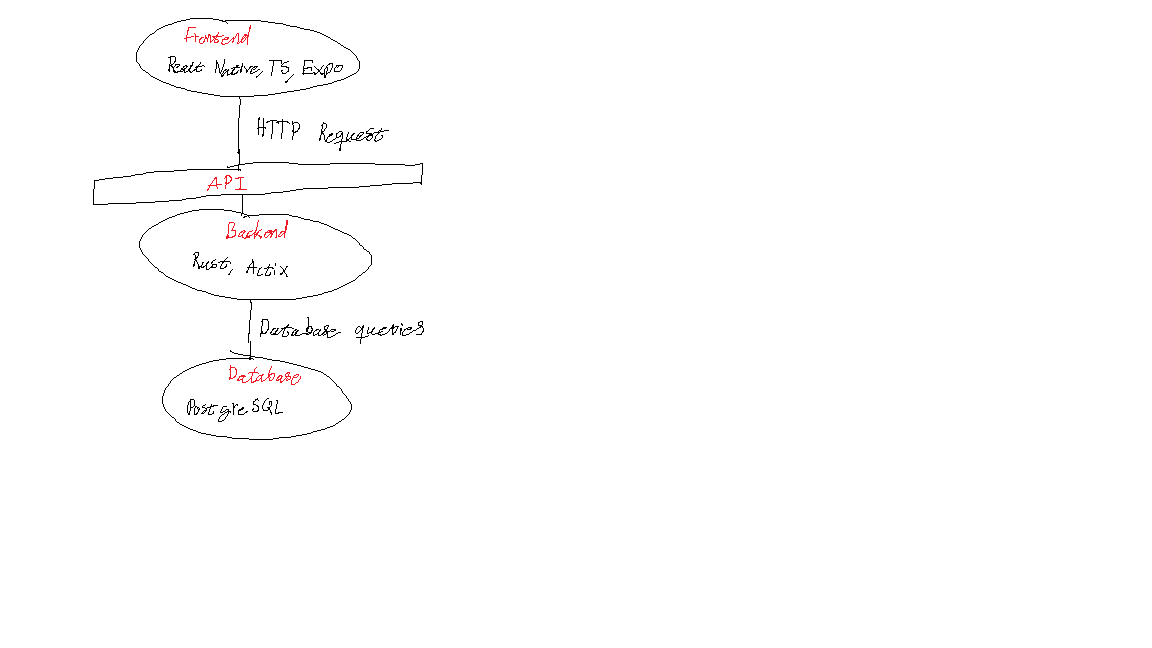 Frontend
React Native, TS, Expo
HTTP Request
API
Backend
Rust, Actix
Database queries
Database
PostgreSQL